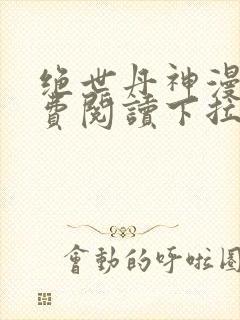 绝世丹神漫
費閱讀下拉
會動的呼啦圈